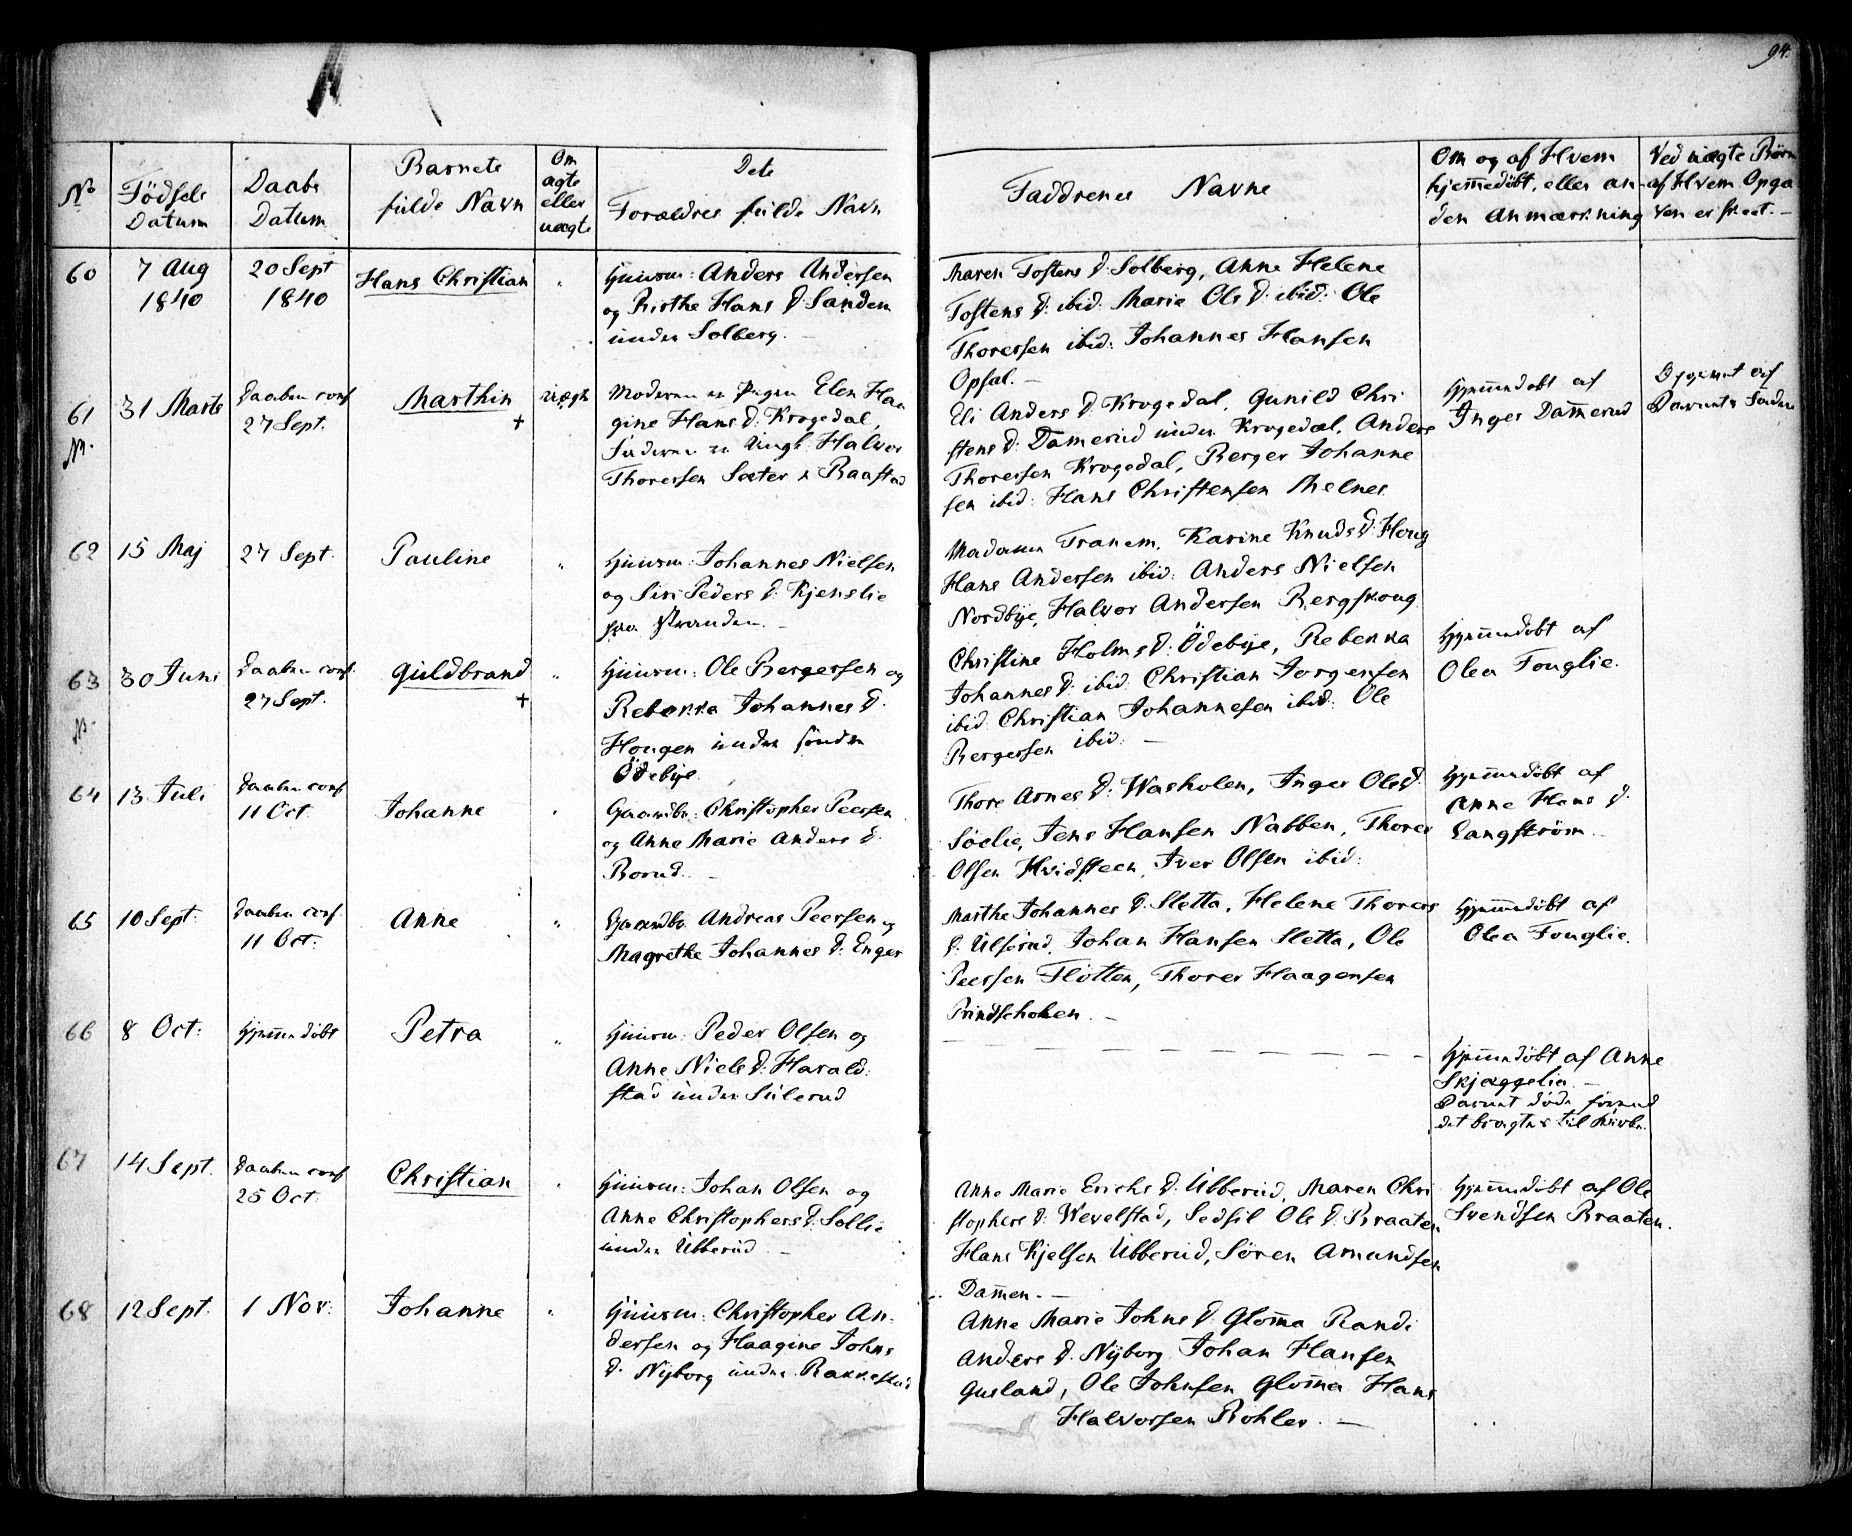 94.
No
Födsels
Datum
Daabs
Datum
Barnets
fulde Navn
Om
ægte
eller
uægte
Dets
Forældres fulde Navn
Faddrenes Navne
Om og af Hvem
hjemmedöbt, eller an-
den Anmærkning
Ved uægte Börn
af Hvem Opga
ven er skeet.-
60
7 Aug
1840
20 Sept
1840
Hans Christian
"
Huusm: Anders Andersen
og Birthe Hans D. Sanden
under Solberg. -
Maren Tostens D. Solberg, Anne Helene
Tostens D. ibid: Marie Ols D. ibid: Ole
Thoresen ibid: Johannes Hansen
Opsal. -
61
N.
31 Marts
Daaben conf
27 Sept.
Marthin
+
uægte
Moderen er Pigen Elen Haa
gine Hans D. Krogedal,
Faderen er Ungk. Halvor
Thoresen Sæter Raastad
Eli Anders D. Krogedal, Gunild Chri
stens D. Damerud under Krogedal, Anders
Thoresen Krogedal, Berger Johanne
sen ibid: Hans Christensen Melnes
Hjemmedöbt af
Inger Dam̄erud
af
Barnets Fader
62
15 Maj
27 Sept.
Pauline
"
Huusm: Johannes Nielsen
og Siri Peders D. Kjenslie
paa Stranden. -
Madame Tranem, Karine Knuds D. Houg
Hans Andersen ibid: Anders Nielsen
Nordbye, Halvor Andersen Bergskoug
63
N.
30 Juni
Daaben conf
27 Sept.
Guldbrand
+
"
Huusm: Ole Bergersen og
Rebekka Johannes D.
Hougen under söndre
Ödebye.
Christine Holms D. Ödebye, Rebekka
Johannes D. ibid. Christian Jorgensen
ibid. Christian Johannesen ibid. Ole
Bergersen ibid. -
Hjemmedöbt af
Olea Fouglie.
64
13 Juli
Daaben conf
11 Oct.
Johanne
"
Gaardbr: Christopher Peersen
og Anne Marie Anders D.
Borud. -
Thore Arnes D. Washolen, Inger Ols D.
Söelie, Jens Hansen Nabben, Thorer
Olsen Hvidsteen, Iver Olsen ibid:
Hjemmedöbt af
Anne Hans D.
Langström.
65
10 Sept.
Daaben conf.
11 Oct:
Anne
"
Gaardbr. Andreas Peersen og
Magrethe Johannes D. Enger
Marthe Johannes D. Sletta, Helene Thorers
D. Ulsrud, Johan Hansen Sletta, Ole
Peersen Flotten, Thorer Haagensen
Prindsehoken. -
Hjemmedöbt af
Olea Fouglie.
66
8 Oct:
Hjemmedöbt
Petra
"
Huusm: Peder Olsen og
Anne Niels D. Harald:
stad under Sulerud
Hjemmedöbt af Anne
Skjæggelia. -
Barnet döde förend
det bragtes til Kirke.
67
14 Sept.
Daaben conf
25 Oct.
Christian
"
Huusm: Johan Olsen og
Anne Christophers D. Sollie
under Ubberud. -
Anne Marie Erichs D. Ubberud, Maren Chri
stophers D. Wevelstad, Sedsil Ols D. Braaten
Hans Kjelsen Ubberud, Sören Amundsen
Dam̄en. -
Hjemmedöbt af Ole
Svendsen Braaten.
68
12 Sept.
1 Nov:
Johanne
"
Huusm: Christopher An-
dersen og Haagine Johns
D. Nyborg under Rakkestad
Anne Marie Johns D. Glom̄a Randi
Anders D. Nyborg Johan Hansen
Gusland, Ole Johnsen Glom̄a Hans
Halvorsen Bohler. -